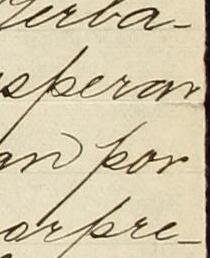 Yerba-
speran
an por
orpre-